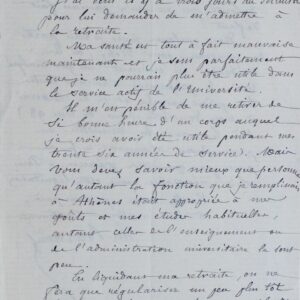 j'ai venu il y a trois jours au
pour lui demander de m'admettre à
la retraite.
Ma santé est tout à fait mauvaise
maintenant et je sens parfaitement
que je ne pourrais plus être utile dans
le service actif de l'Université.
Il m'est pénible de me retirer de
si bonne heure d'un corps auquel
je crois avoir été utile pendant mes
trente six années de service. Mais
vous devez savoir mieux que personne
qu'autant la fonction que je remplissais
à Athènes était appropriée à mes
goûts et mes études habituelles,
autant celles de l'enseignement ou
de l'administration universitaire le sont
peu.
En liquidant ma retraite, on ne
fera que régulariser un peu plus tôt